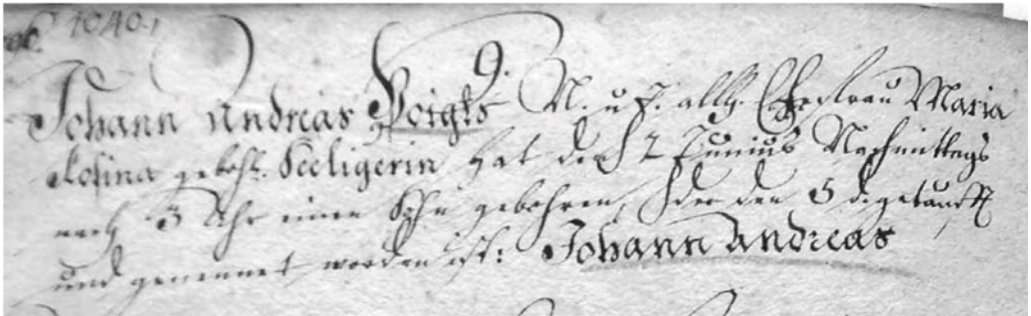 9.
Johann Andreas Voigts N. u. J. allh. Ehefrau Maria
Rosina gebohr. Seeligerin hat den 2 Junius Nachmittags
nach 3 Uhr einen Sohn gebohren, der den 5 d. getaufft
und genennet worden ist: Johann Andreas